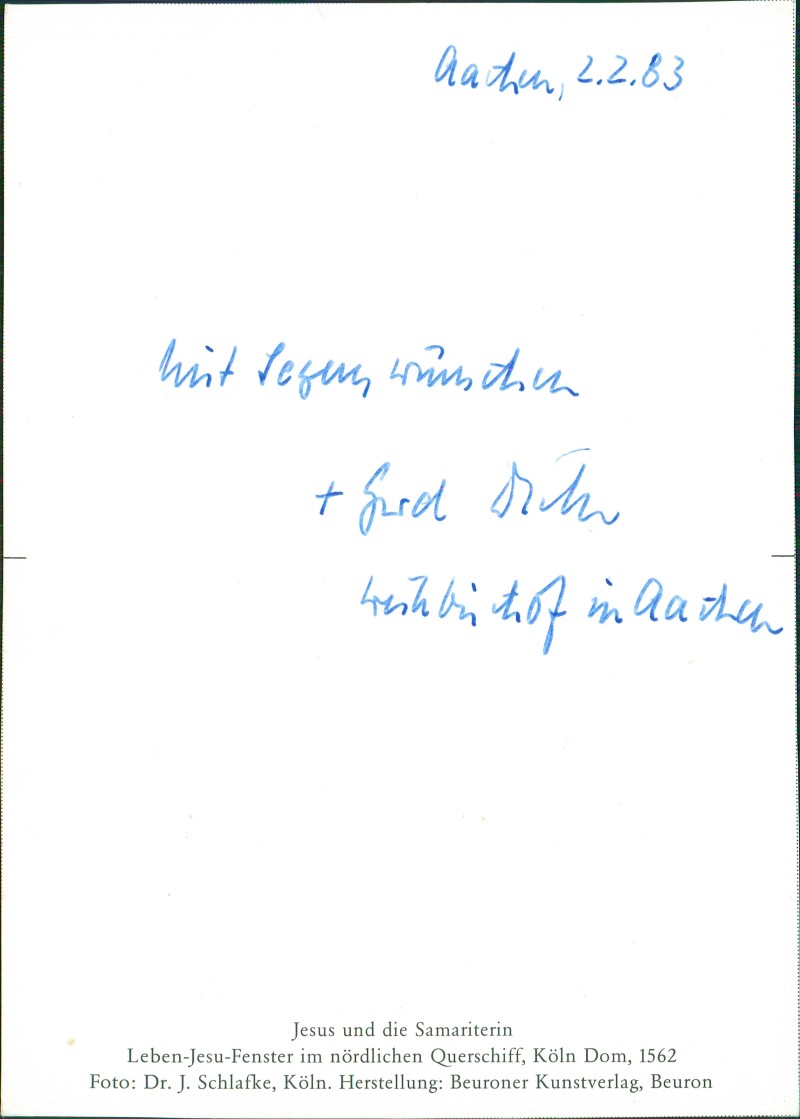 Aachen, 2.2.83
Mit Segenswünschen
+ Gerd Dicke
Weihbischof in Aachen
Jesus und die Samariterin
Leben-Jesu-Fenster im nördlichen Querschiff, Köln Dom, 1562
Foto: Dr. J. Schlafke, Köln. Herstellung: Beuroner Kunstverlag, Beuron